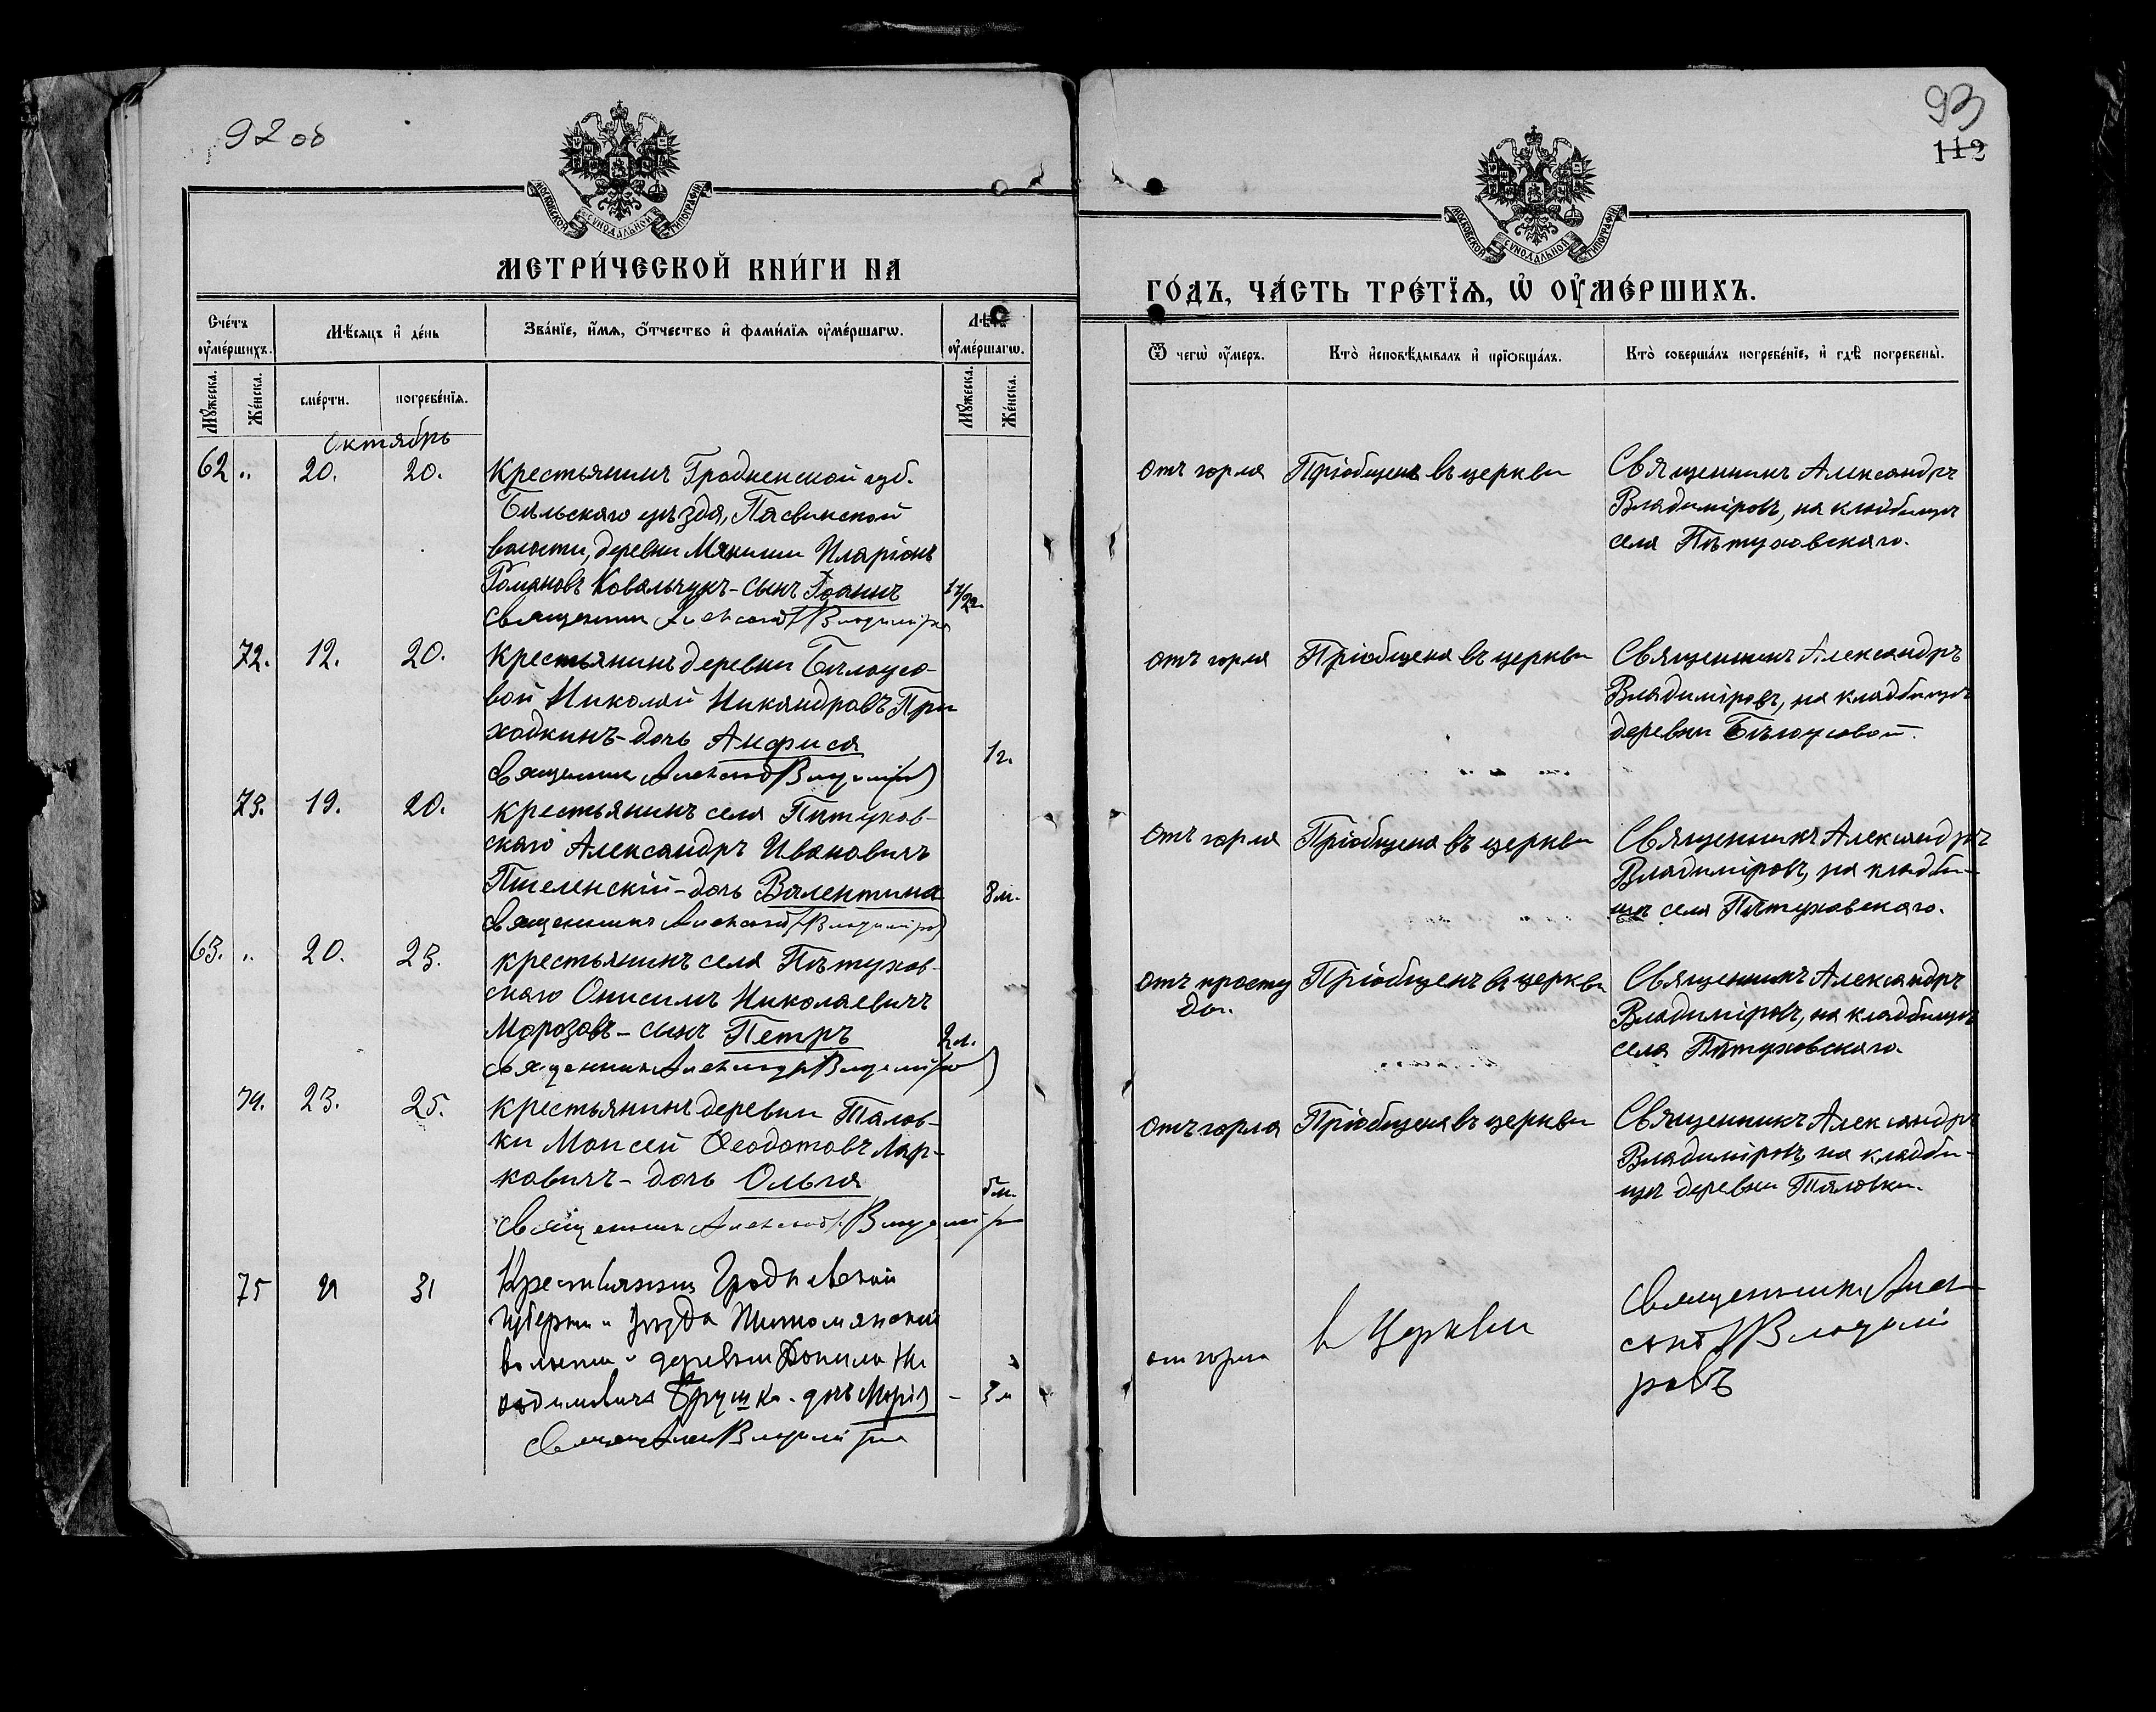 92 об
МОСКОВСКОЙ СѴНОДАЛЬНОЙ ТИПОГРАФІИ
МЕТРИ́ЧЕСКОЙ КНИ́ГИ НА
Сче́тъ ᲂу҆ме́ршихъ.
Мѣ́сяцъ и҆ де́нь
Зва́нїе, и҆́мѧ, ѻ҆́тчество и҆ фамй́лїѧ ᲂу҆ме́ршагѡ.
Лѣ́та ᲂу҆ме́ршагѡ.
Мꙋ́жеска.
Же́нска.
сме́рти.
погребе́нїѧ.
Мꙋ́жеска.
Же́нска.
Октябрь
62 " 20. 20. Крестьянинъ Гродненской губ.
Бѣльскаго уѣзда, Пасвинской
волости, деревни Иларіонъ
Романовъ Ковальчукъ - сынъ Іоаннъ
Священникъ Александръ Владиміровъ
72. 12. 20. Крестьянинъ деревни Бѣлоусо-
вой Николай Никандровъ При
ходкинъ - дочь Анфиса 1 г.
Священникъ Александръ Владиміровъ
73. 19. 20. Крестьянинъ села Пѣтухов-
скаго Александръ Ивановичъ
Пшеленскій - дочь Валентина 8 м.
Священникъ Александръ Владиміровъ
63. " 20. 23. Крестьянинъ села Пѣтухов-
скаго Онисимъ Николаевичъ
Морозовъ - сынъ Петръ
Священникъ Александръ Владиміровъ
74. 23. 25. Крестьянинъ деревни Талов-
ки Моисей Ѳеодотовъ Мар-
ковичъ - дочь Ольга 5 м.
Священникъ Александръ Владиміровъ
75 31 Крестьянинъ Гродненской
Губерніи уѣзда
волости деревни
Грушка - дочь Марія - 3 м
Владиміровъ
93
112
МОСКОВСКОЙ СѴНОДАЛЬНОЙ ТИПОГРАФІИ
ГО́ДЪ, ЧА́СТЬ ТРЕ́ТЇѦ, Ѽ ОУ҆МЕ́РШИХЪ.
Ѿ чегѡ̀ ᲂу҆́меръ.
Кто̀ и҆сповѣ́дывалъ и҆ прїѻбща́лъ.
Кто̀ соверша́лъ погребе́нїе, и҆ гдѣ̀ погребены̀.
отъ горла Пріобщенъ въ церкви Священникъ Александръ
Владиміровъ, на кладбищѣ
села Пѣтуховскаго.
отъ горла Пріобщена въ церкви Священникъ Александръ
Владиміровъ, на кладбищѣ
деревни Бѣлоусовой.
Отъ горла Пріобщена въ церкви Священникъ Александръ
Владиміровъ, на кладби-
щѣ села Пѣтуховскаго.
Отъ просту Пріобщенъ въ церкви Священникъ Александръ
ды. Владиміровъ, на кладбищѣ
села Пѣтуховскаго.
Отъ горла Пріобщена въ церкви Священникъ Александръ
Владиміровъ, на кладби-
щѣ деревни Таловки.
от горла в Церкви Священникъ Алек
сандръ Владимі
ровъ